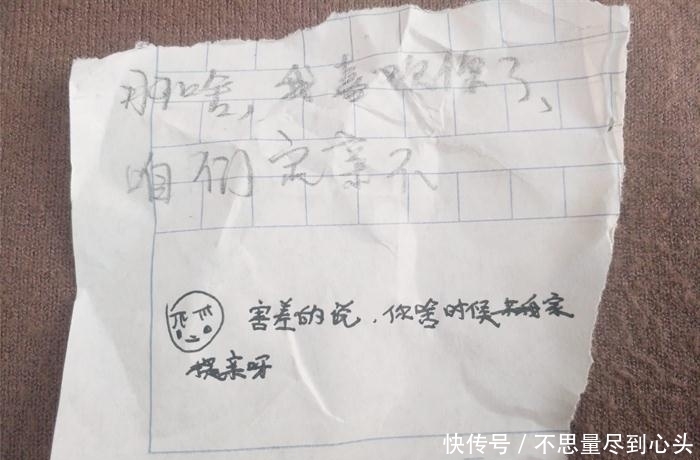 那啥，我喜欢你了、
咱们定亲不
害差的说，你啥时候去我家
提亲呀
快传号 / 不思量尽到心头